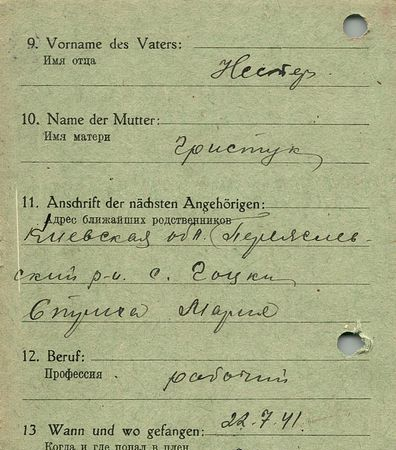 9. Vorname des Vaters:
Имя отца
Нестер
10. Name der Mutter:
Имя матери
Гристук
11. Anschrift der nächsten Angehörigen:
Адрес ближайших родственников
Киевская обл. Переяслев-
ский р-н. с. Гоцки
Мария
12. Beruf:
Профессия
рабочий
13 Wann und wo gefangen: 22.7.41.
Когда и где попал в плен